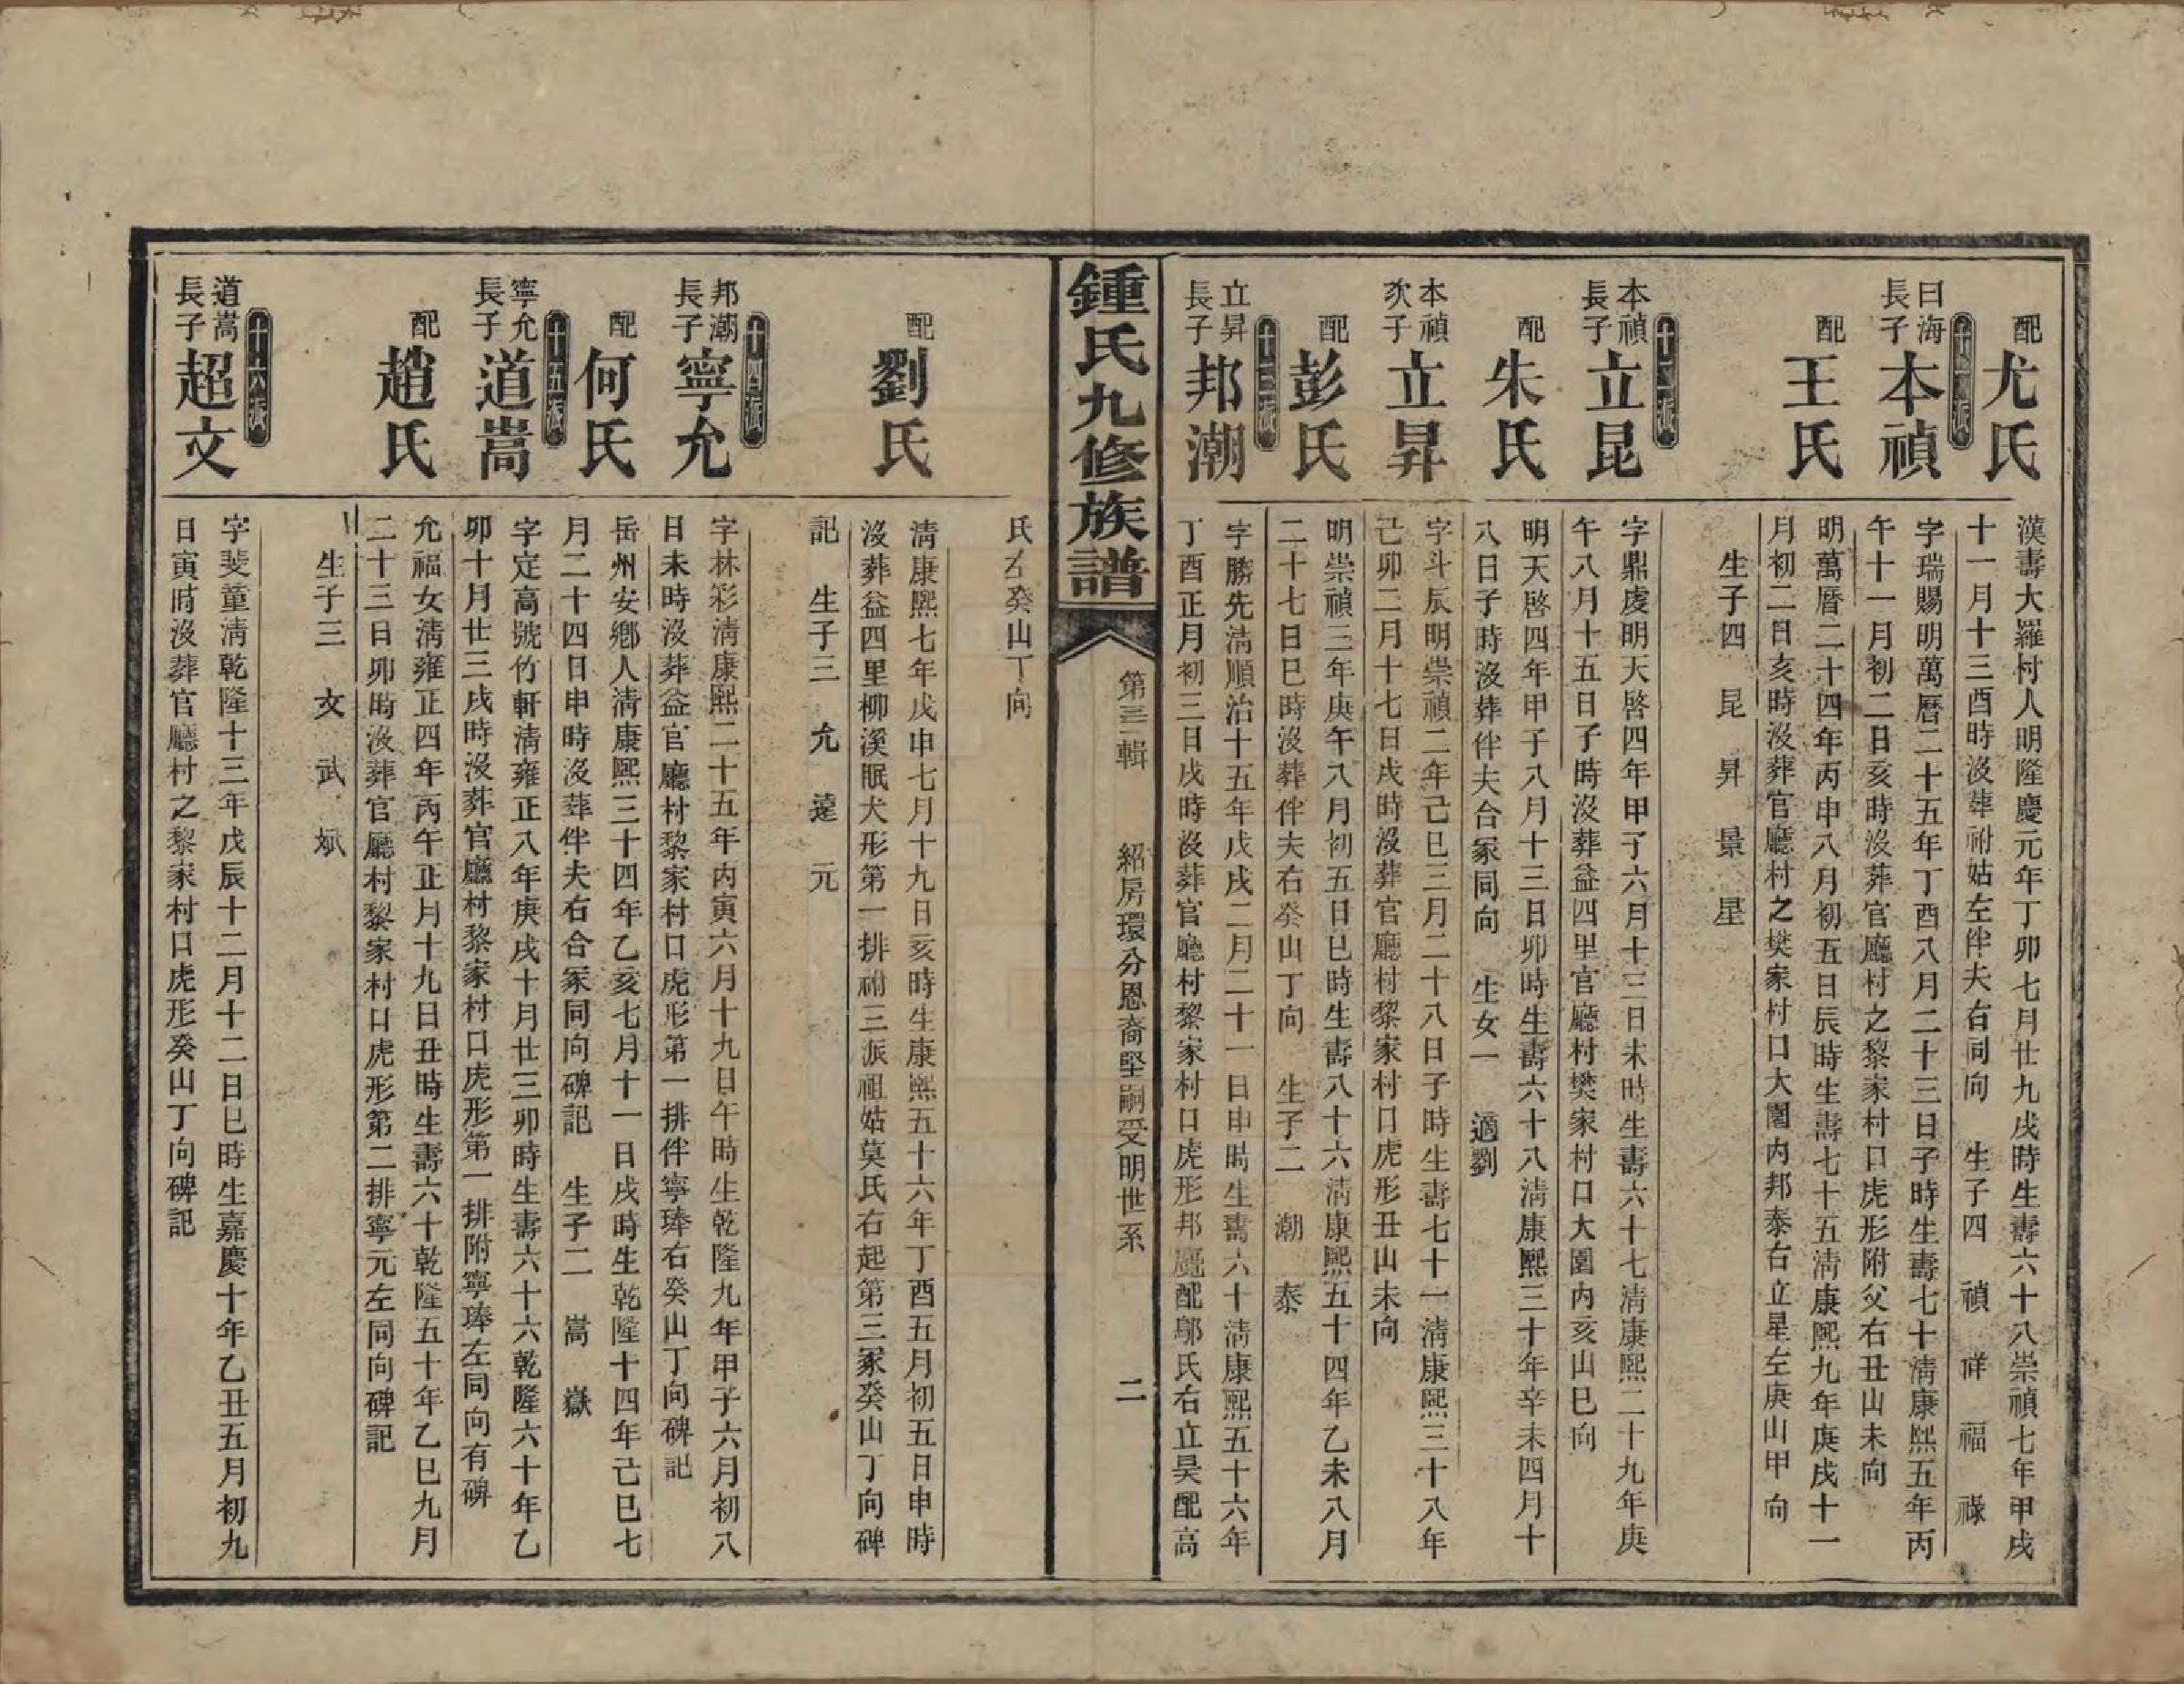 配
尤氏
漢壽大羅村人明隆慶元年丁卯七月廿九戌時生壽六十八崇禎七年甲戌
十一月十三酉時沒葬祔姑左伴夫右同向　生子四　禎　祥　福　祿
十一派
曰海
長子
本禎
字瑞賜明萬曆二十五年丁酉八月二十三日子時生壽七十淸康熙五年丙
午十一月初二日亥時沒葬官廳村之黎家村口虎形附父右丑山未向
配
王氏
明萬曆二十四年丙申八月初五日辰時生壽七十五淸康熙九年庚戌十一
月初二日亥時沒葬官廳村之樊家村口大園內邦泰右立星左庚山甲向
生子四　昆　昇　景　星
十二派
本禎
長子
立昆
字鼎虔明天啓四年甲子六月十三日未時生壽六十七淸康熙二十九年庚
午八月十五日子時沒葬益四里官廳村樊家村口大園內亥山巳向
配
朱氏
明天啓四年甲子八月十三日卯時生壽六十八淸康熙三十年辛未四月十
八日子時沒葬伴夫合冢同向　生女一　適劉
本禎
次子
立昇
字斗辰明崇禎二年己巳三月二十八日子時生壽七十一淸康熙三十八年
己卯二月十七日戌時沒葬官廳村黎家村口虎形丑山未向
配
彭氏
明崇禎三年庚午八月初五日巳時生壽八十六淸康熙五十四年乙未八月
二十七日巳時沒葬伴夫右癸山丁向　生子二　潮　泰
十三派
立昇
長子
邦潮
字勝先淸順治十五年戊戌二月二十一日申時生壽六十淸康熙五十六年
丁酉正月初三日戌時沒葬官廳村黎家村口虎形邦颺配鄔氏右立昊配高
鍾氏九修族譜
第三輯　紹房環分恩裔堅嗣受明世系　二
氏左癸山丁向
配
劉氏
淸康熙七年戊申七月十九日亥時生康熙五十六年丁酉五月初五日申時
沒葬益四里柳溪眠犬形第一排祔三派祖姑莫氏右起第三冢癸山丁向碑
記　生子三　允　達　元
十四派
邦潮
長子
寧允
字林彩淸康熙二十五年丙寅六月十九日午時生乾隆九年甲子六月初八
日未時沒葬益官廳村黎家村口虎形第一排伴寧琫右癸山丁向碑記
配
何氏
岳州安鄕人淸康熙三十四年乙亥七月十一日戌時生乾隆十四年己巳七
月二十四日申時沒葬伴夫右合冢同向碑記　生子二　嵩　嶽
十五派
寧允
長子
道嵩
字定高號竹軒淸雍正八年庚戌十月廿三卯時生壽六十六乾隆六十年乙
卯十月廿三戌時沒葬官廳村黎家村口虎形第一排附寧琫左同向有碑
配
趙氏
允福女淸雍正四年丙午正月十九日丑時生壽六十乾隆五十年乙巳九月
二十三日卯時沒葬官廳村黎家村口虎形第二排寧元左同向碑記
生子三　文　武　斌
十六派
道嵩
長子
超文
字斐童淸乾隆十三年戊辰十二月十二日巳時生嘉慶十年乙丑五月初九
日寅時沒葬官廳村之黎家村口虎形癸山丁向碑記